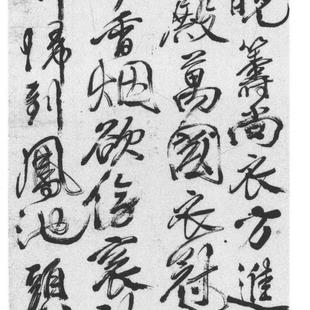 曉籌尚衣方進
殿萬國衣冠
香烟欲傍衮
歸到鳳池頭